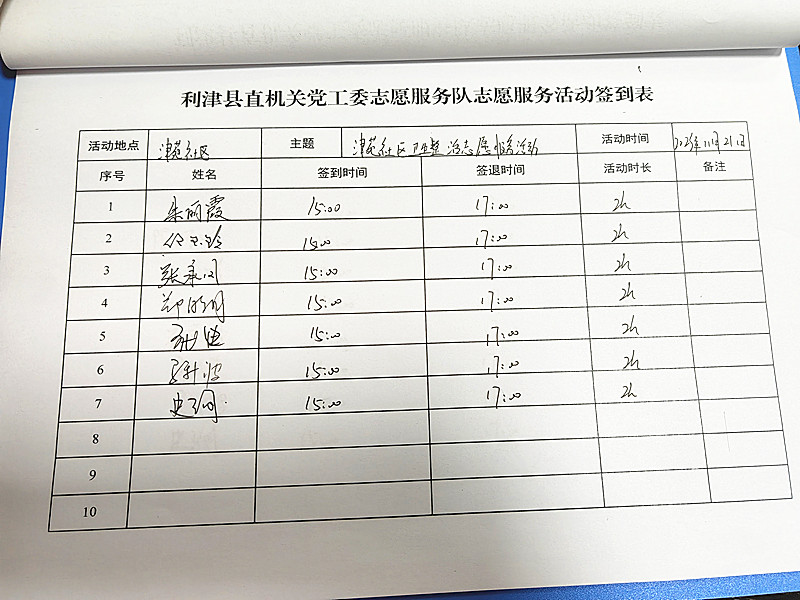 利津县直机关党工委志愿服务队志愿服务活动签到表
活动地点 津苑社区 主题 津苑社区卫生整治志愿服务活动 活动时间 11月21日
序号 姓名 签到时间 签退时间 活动时长 备注
1 朱丽霞 15:00 17:00 2h
2 15:00 17:00 2h
3 15:00 17:00 2h
4 15:00 17:00 2h
5 15:00 17:00 2h
6 15:00 17:00 2h
7 15:00 17:00 2h
8
9
10